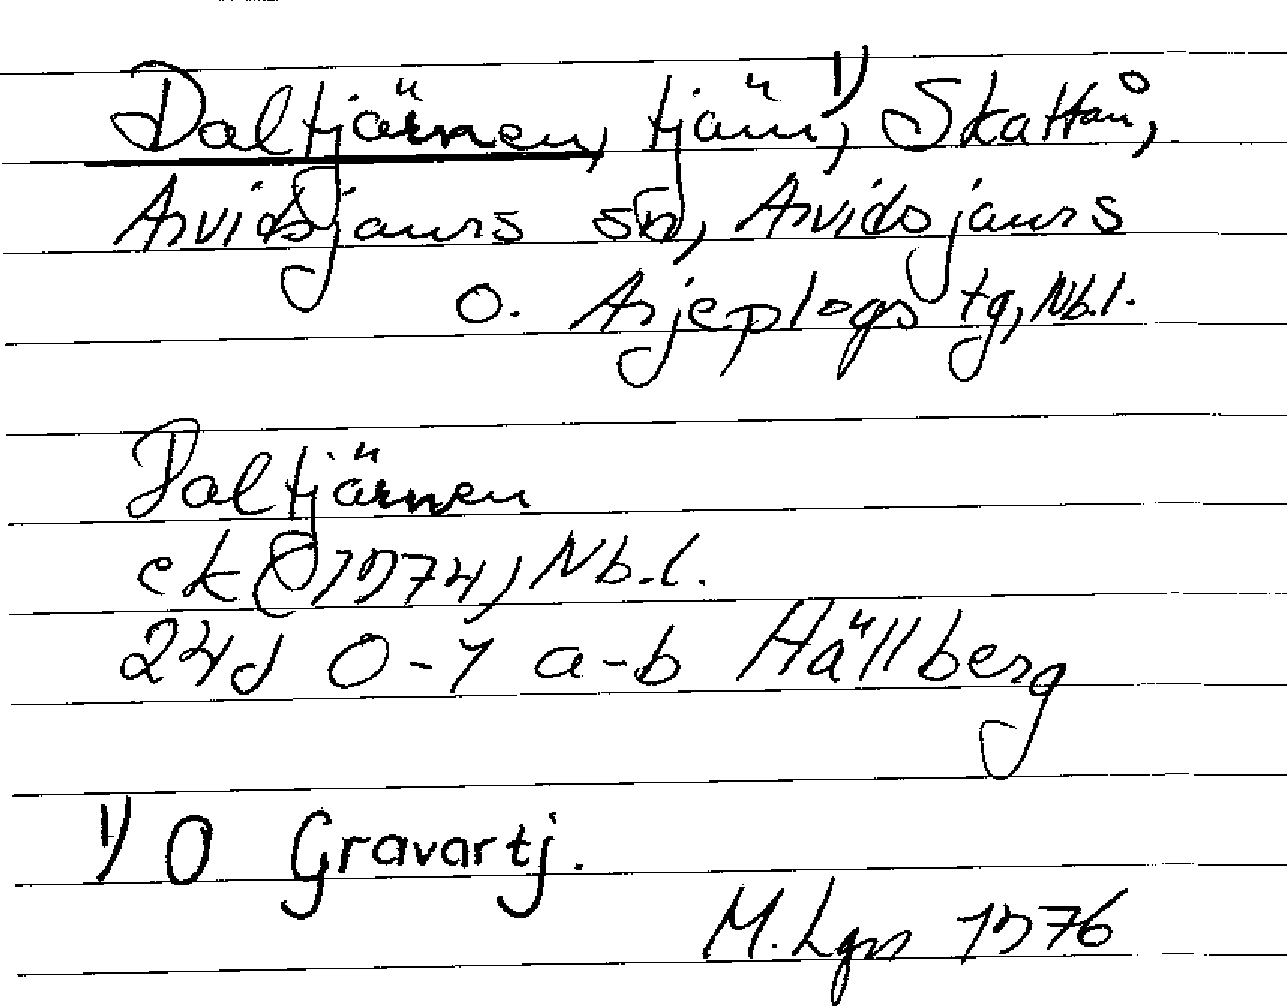 Daltjärnen, tjärn 1), Skattån,
Arvidsjaurs sn, Arvidsjaurs
o. Arjeplogs tg, Nb.l.
Daltjärnen
ek (1974) Nb.l.
24J 0-1 a-b Hällberg
1) O Gravartj.
M. Lgn 1976